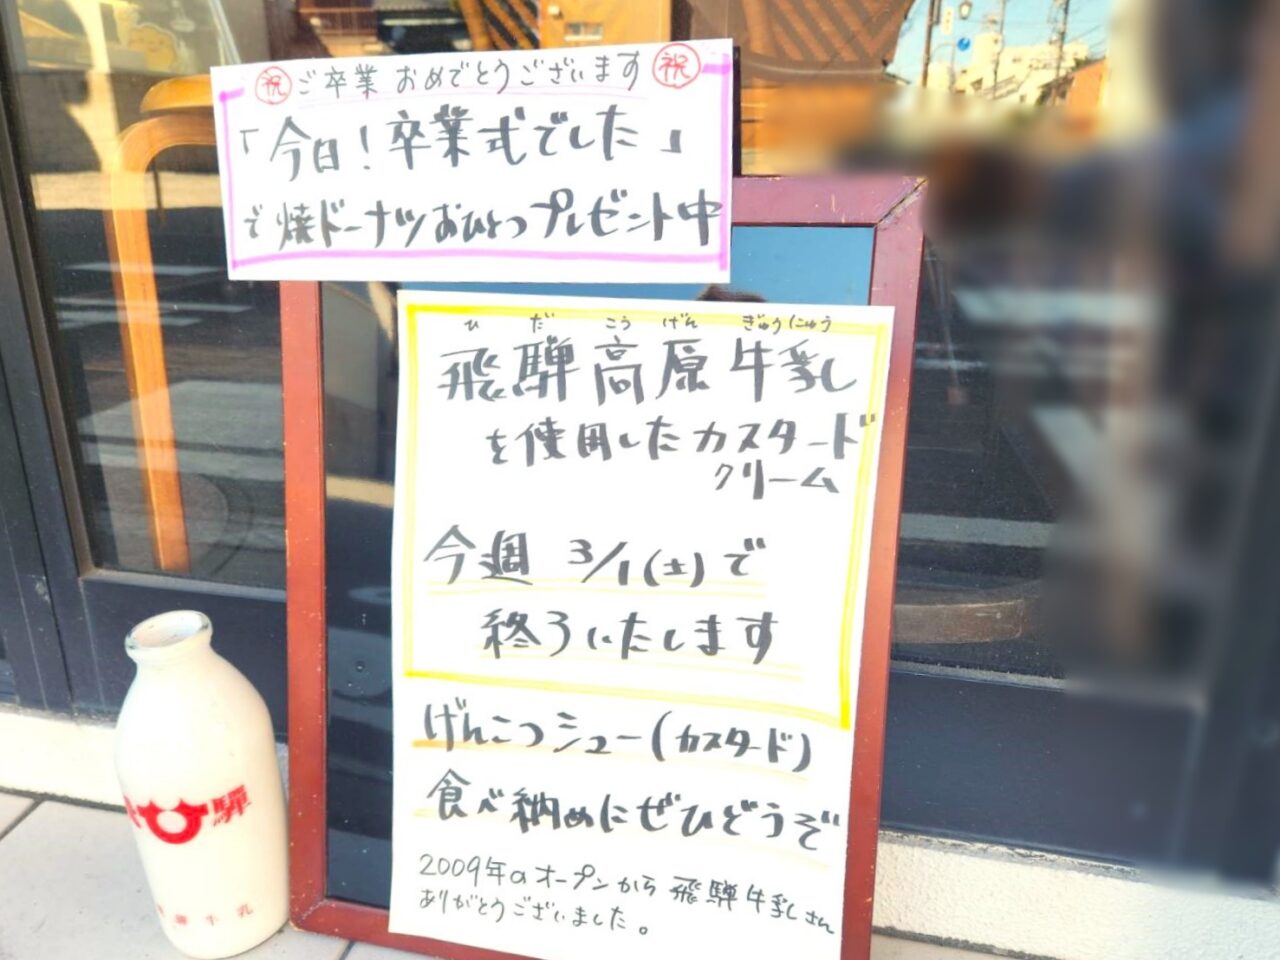 祝 ご卒業 おめでとうございます 祝
「今日！卒業式でした」
で 焼ドーナツおひとつプレゼント中
ひ だ こう げん ぎゅうにゅう
飛騨高原牛乳
を使用したカスタード
クリーム
今週 3/1(土)で
終了いたします
げんこつシュー(カスタード)
食べ納めにぜひどうぞ
2009年のオープンから 飛騨牛乳さん
ありがとうございました。
騨
騨牛乳